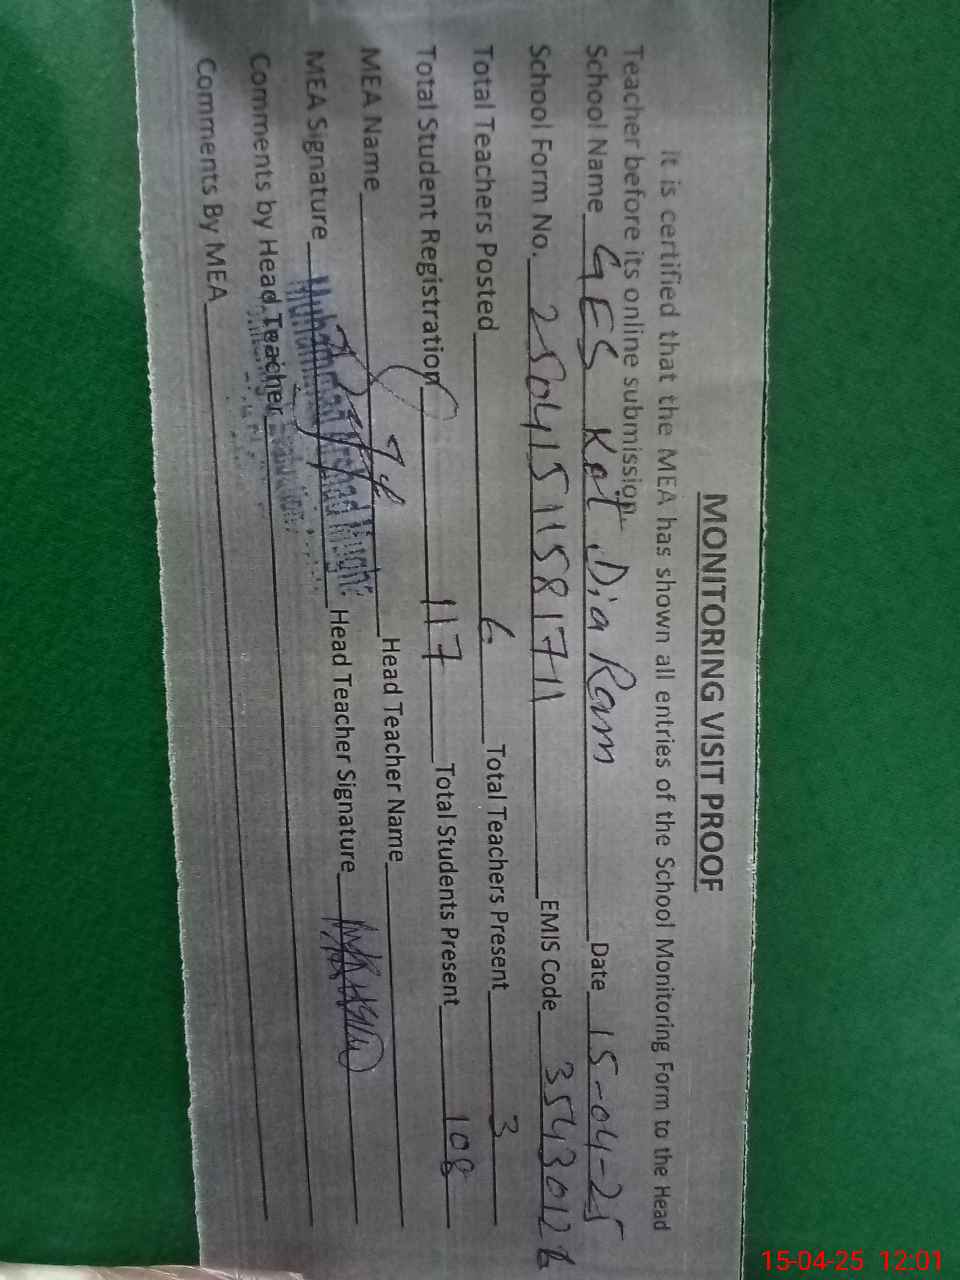 MONITORING VISIT PROOF
It is certified that the MEA has shown all entries of the School Monitoring Form to the Head
Teacher before its online submission.
School Name GES Kot Dia Ram Date 15-04-25
School Form No. 25041511581711 EMIS Code 35430126
Total Teachers Posted 6 Total Teachers Present 3
Total Student Registration 117 Total Students Present 108
MEA Name 74 Head Teacher Name
MEA Signature Muhammad Arshad Mughal Head Teacher Signature
Comments by Head Teacher
Comments By MEA
15-04-25 12:01